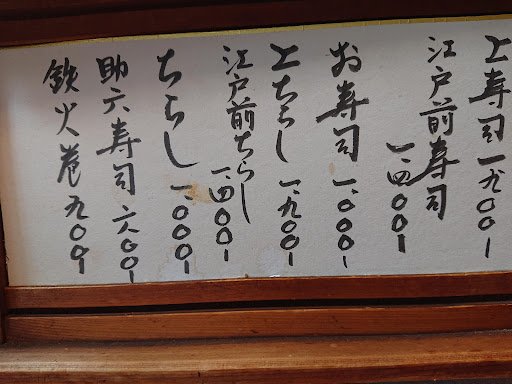 上寿司 一、九〇〇一
江戸前寿司
一、四〇〇一
お寿司 一、〇〇〇一
上ちらし 一、九〇〇一
江戸前ちらし
一、四〇〇一
ちらし 一、〇〇〇一
助六寿司 六〇〇一
鉄火巻 九〇〇一